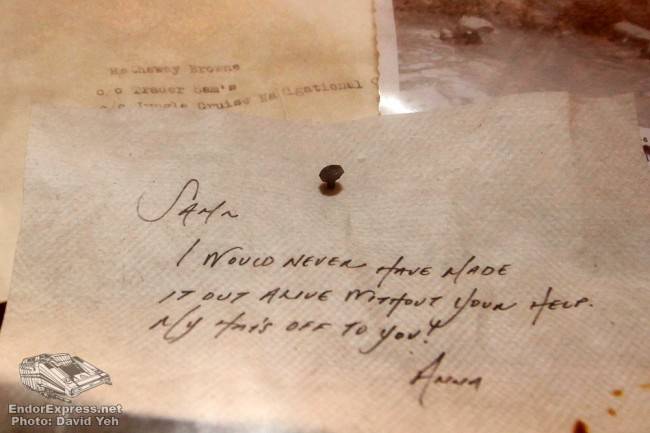 Hathaway Browne
c/o Trader Sam's
c/o Jungle Cruise Navigational
Sam
I would never have made
it out alive without your help.
My hat's off to you!
Anna
EndorExpress.net
Photo: David Yeh